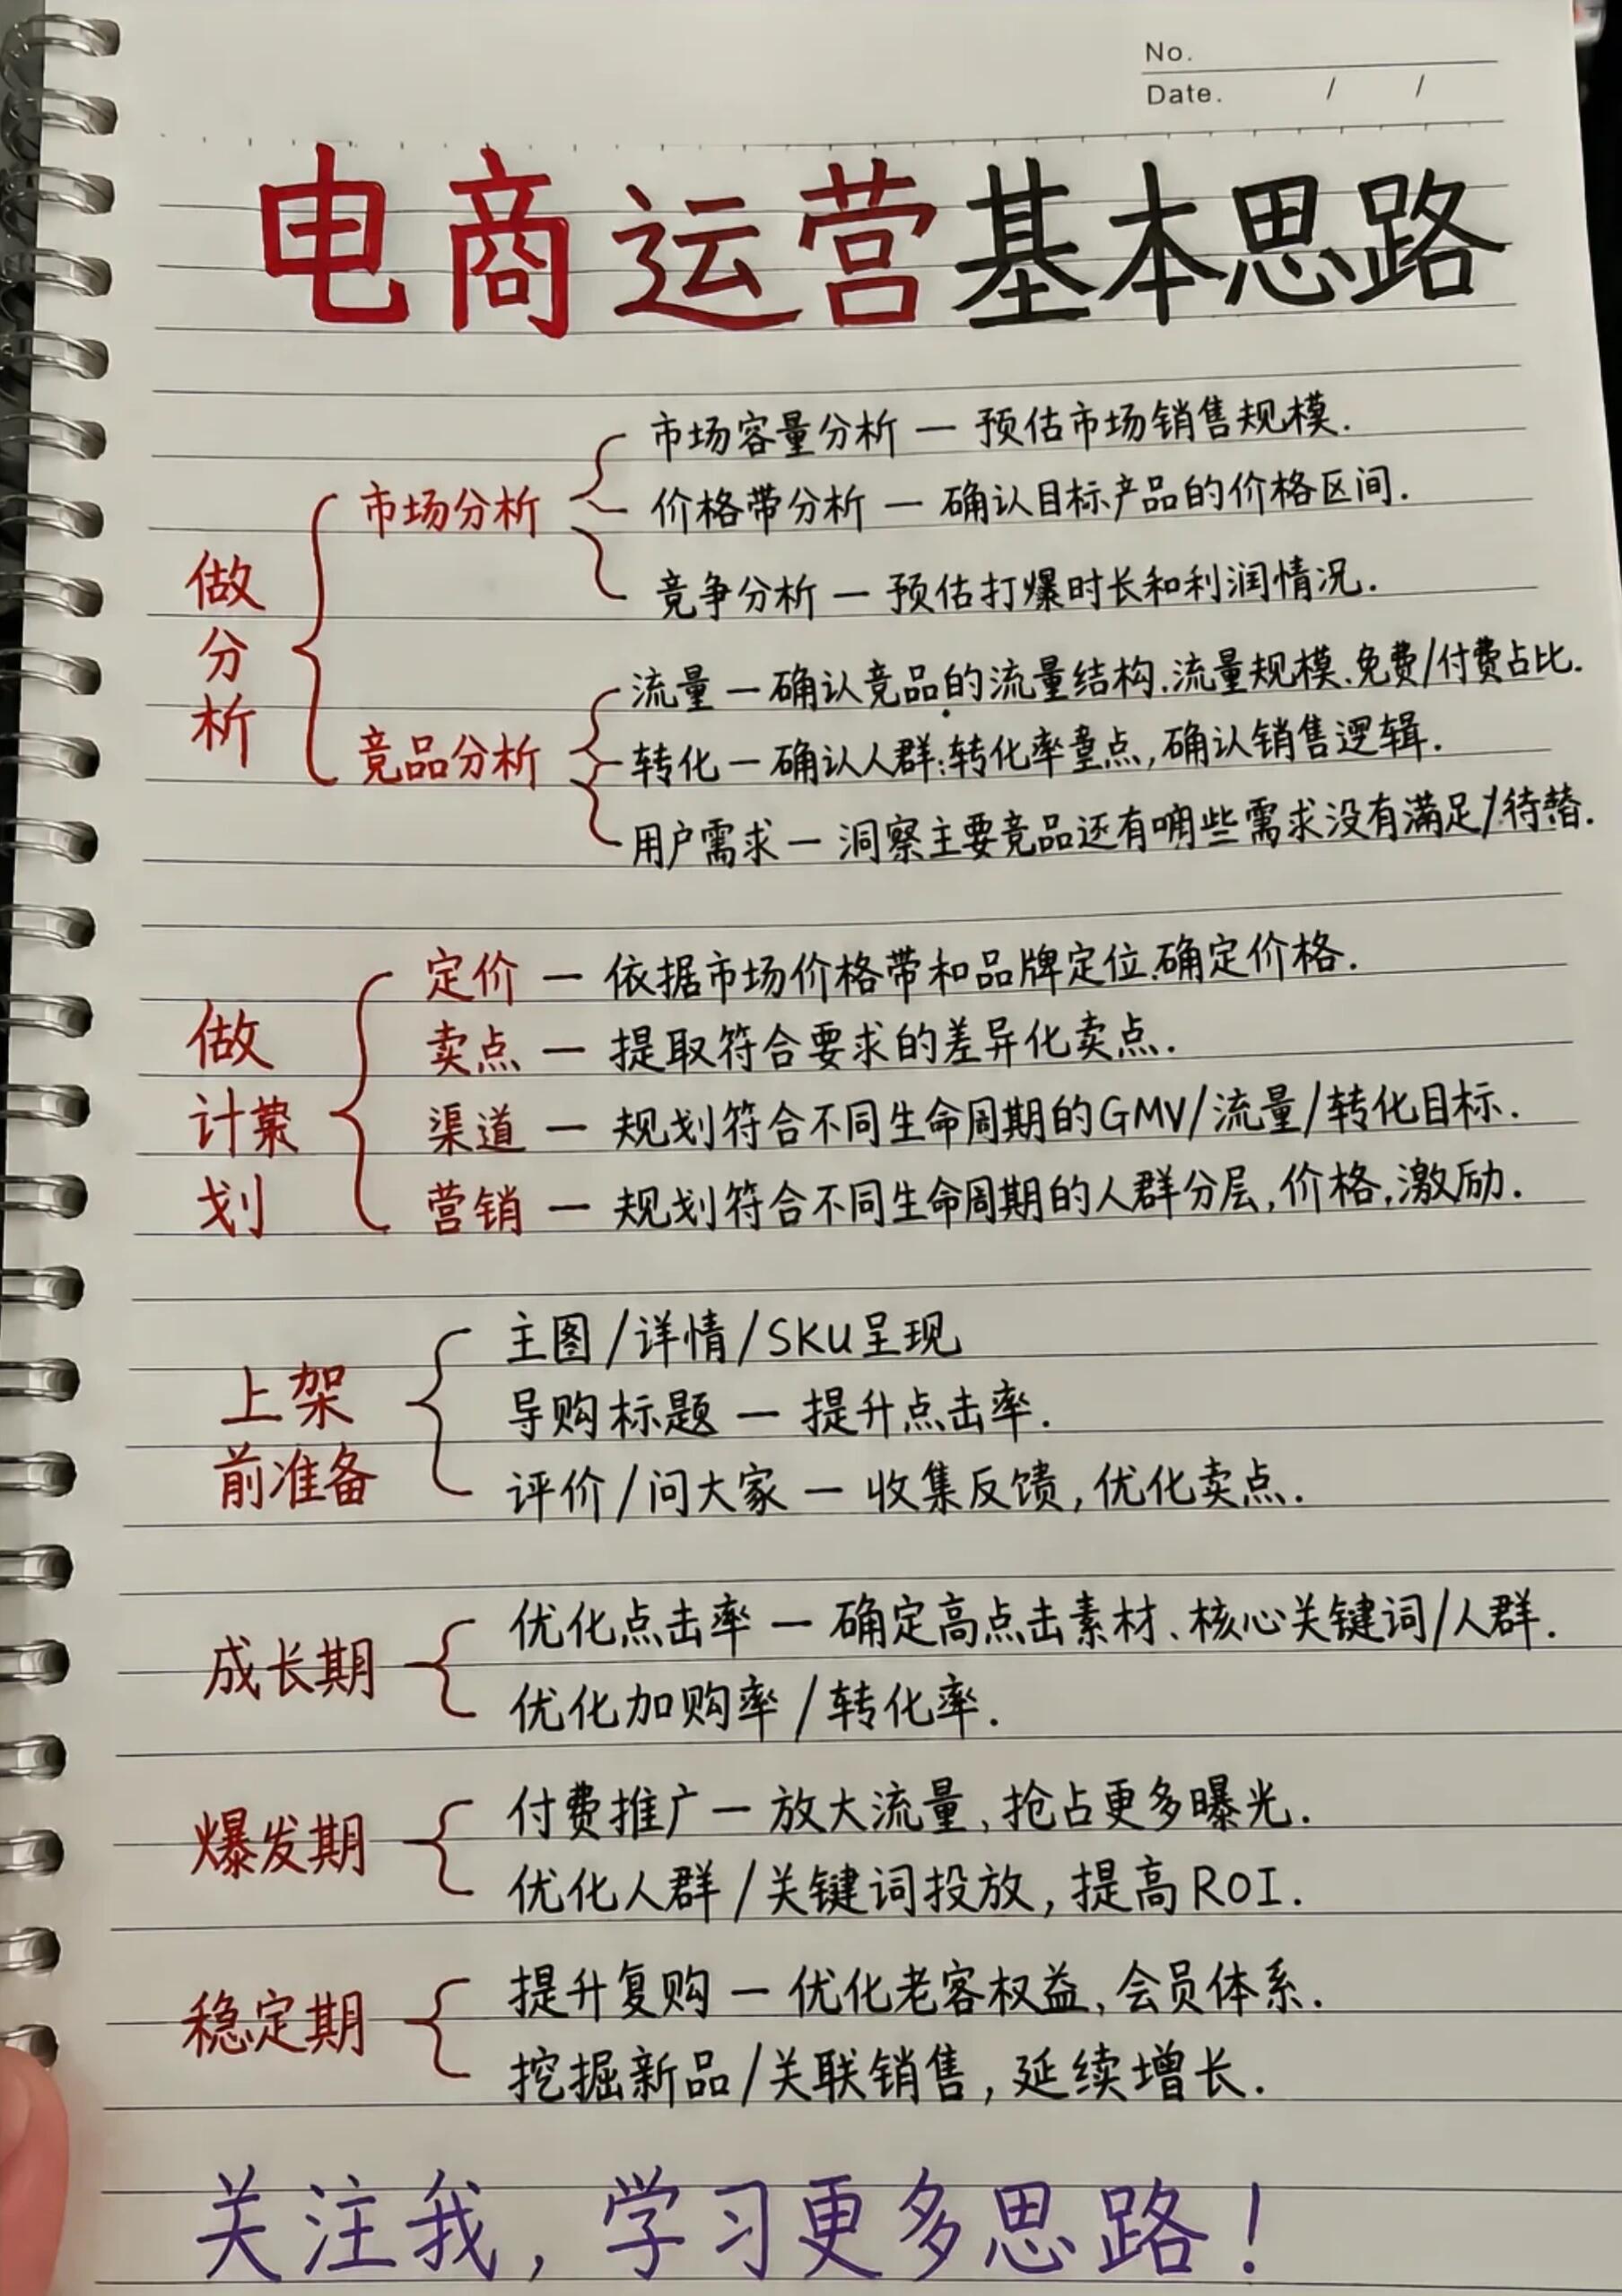 No.
Date. / /
电商运营基本思路
做分析
市场分析
市场容量分析 — 预估市场销售规模.
价格带分析 — 确认目标产品的价格区间.
竞争分析 — 预估打爆时长和利润情况.
竞品分析
流量 — 确认竞品的流量结构.流量规模.免费/付费占比.
转化 — 确认人群:转化率重点,确认销售逻辑.
用户需求 — 洞察主要竞品还有些需求没有满足/待替.
做计划
定价 — 依据市场价格带和品牌定位.确定价格.
卖点 — 提取符合要求的差异化卖点.
渠道 — 规划符合不同生命周期的GMV/流量/转化目标.
营销 — 规划符合不同生命周期的人群分层,价格,激励.
上架
前准备
主图/详情/SKU呈现
导购标题 — 提升点击率.
评价/问大家 — 收集反馈,优化卖点.
成长期
优化点击率 — 确定高点击素材、核心关键词/人群.
优化加购率/转化率.
爆发期
付费推广 — 放大流量,抢占更多曝光.
优化人群/关键词投放,提高ROI.
稳定期
提升复购 — 优化老客权益,会员体系.
挖掘新品/关联销售,延续增长.
关注我,学习更多思路!